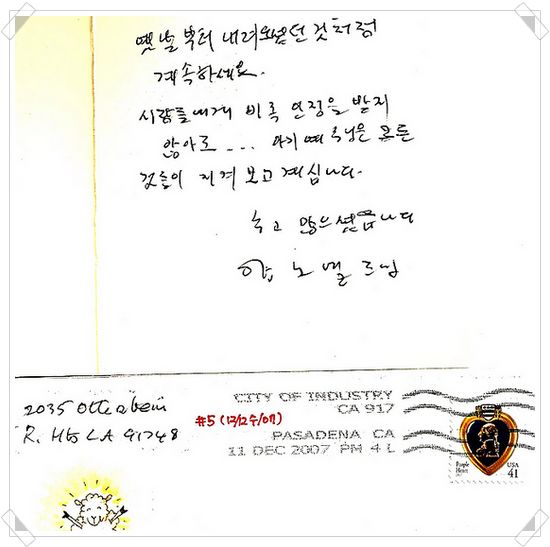 옛날부터 내려오셨던 것처럼
계속하세요.
사람들에게 비록 인정을 받지
않아도 ---- 은 모든
것들이 지켜 보고 계십니다.
수고 많으셨읍니다
노 드림
2035 Otterbein
R. Hts LA 91748
#5 (12/24/07)
CITY OF INDUSTRY
CA 917
PASADENA CA
11 DEC 2007 PM 4 L
Purple
Heart
USA
41